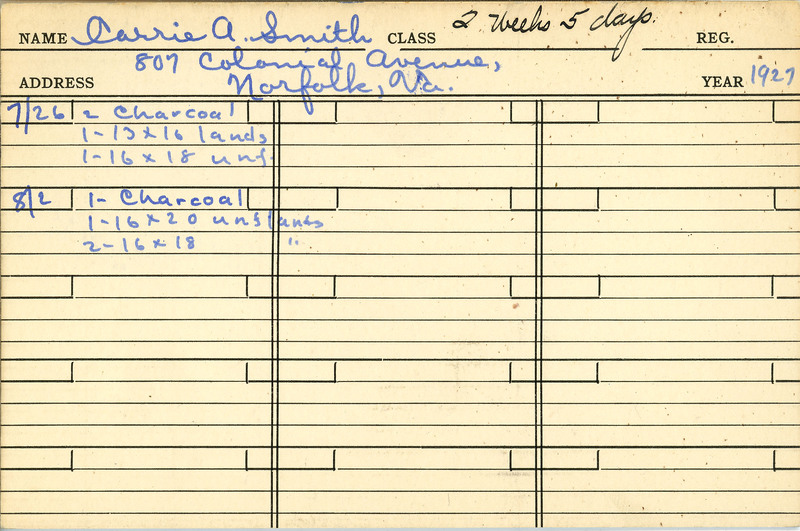 NAME Carrie A. Smith CLASS 2 Weeks 5 days. REG.
807 Colonial Avenue,
ADDRESS Norfolk, Va. YEAR 1927
7/26 2 Charcoal
1-13x16 lands
1-16x18 unf.
8/2 1- Charcoal
1-16x20 unf lands
2-16x18 "